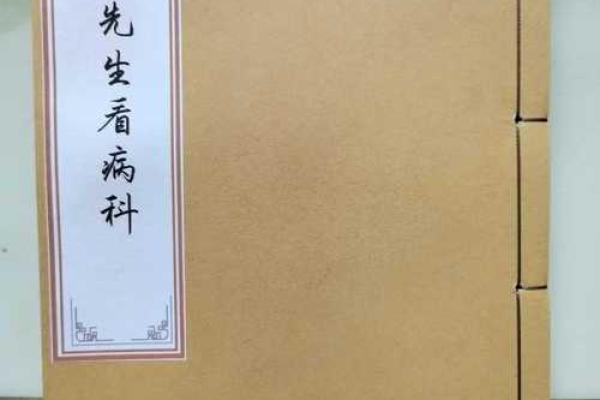 先生看病科